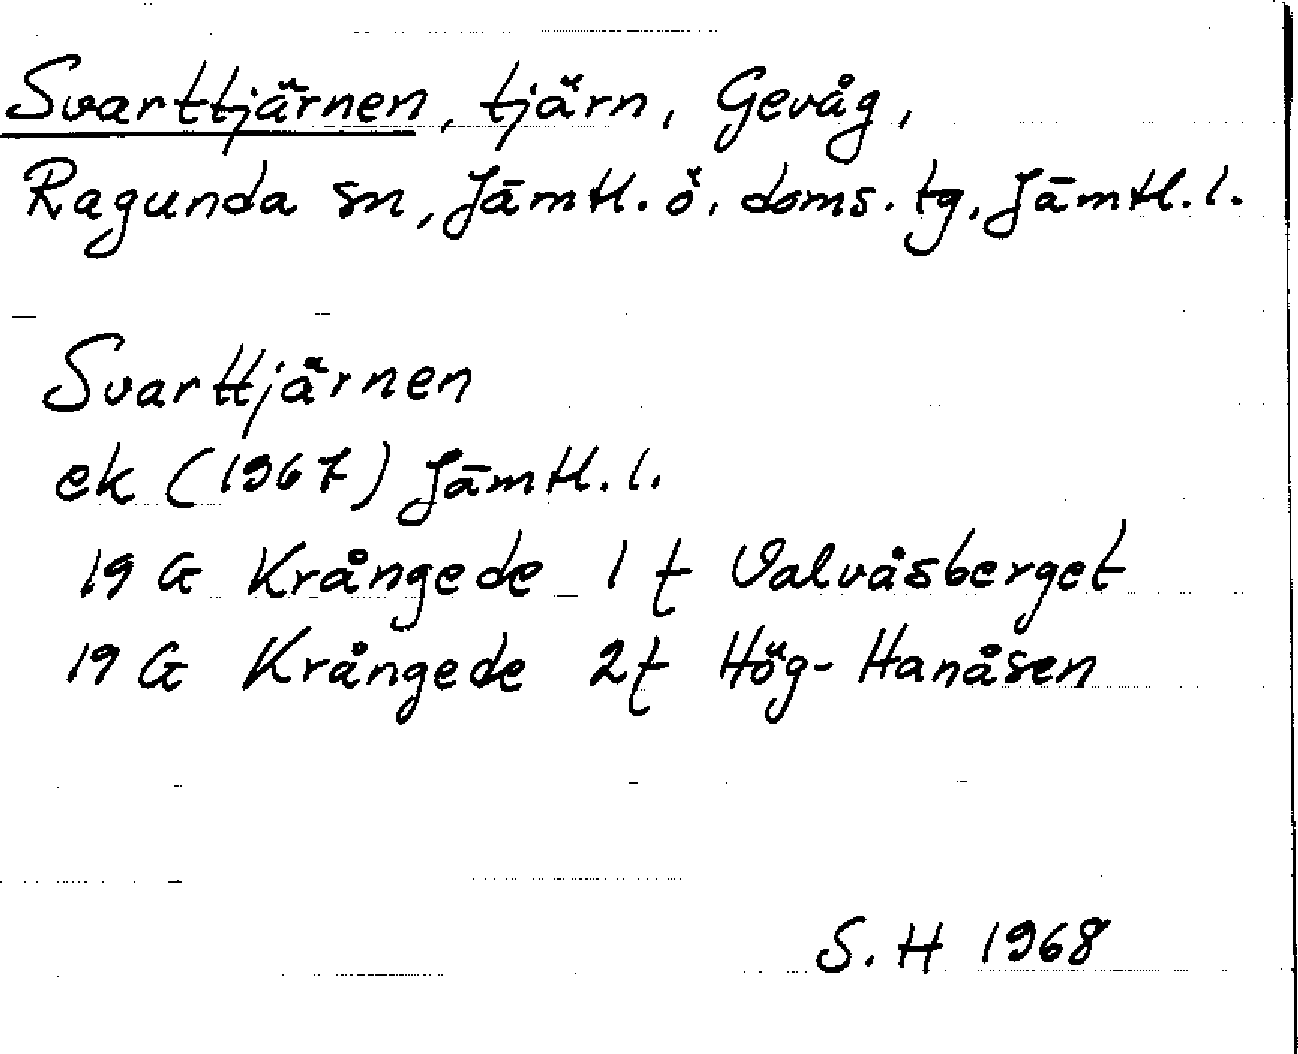 Svarttjärnen, tjärn, Gevåg,
Ragunda sn, Jämtl. ö. doms. tg, Jämtl. l.
Svarttjärnen
ek (1967) Jämtl. l.
19 G Krångede 1 f Valvåsberget
19 G Krångede 2f Hög-Hanåsen
S. H 1968